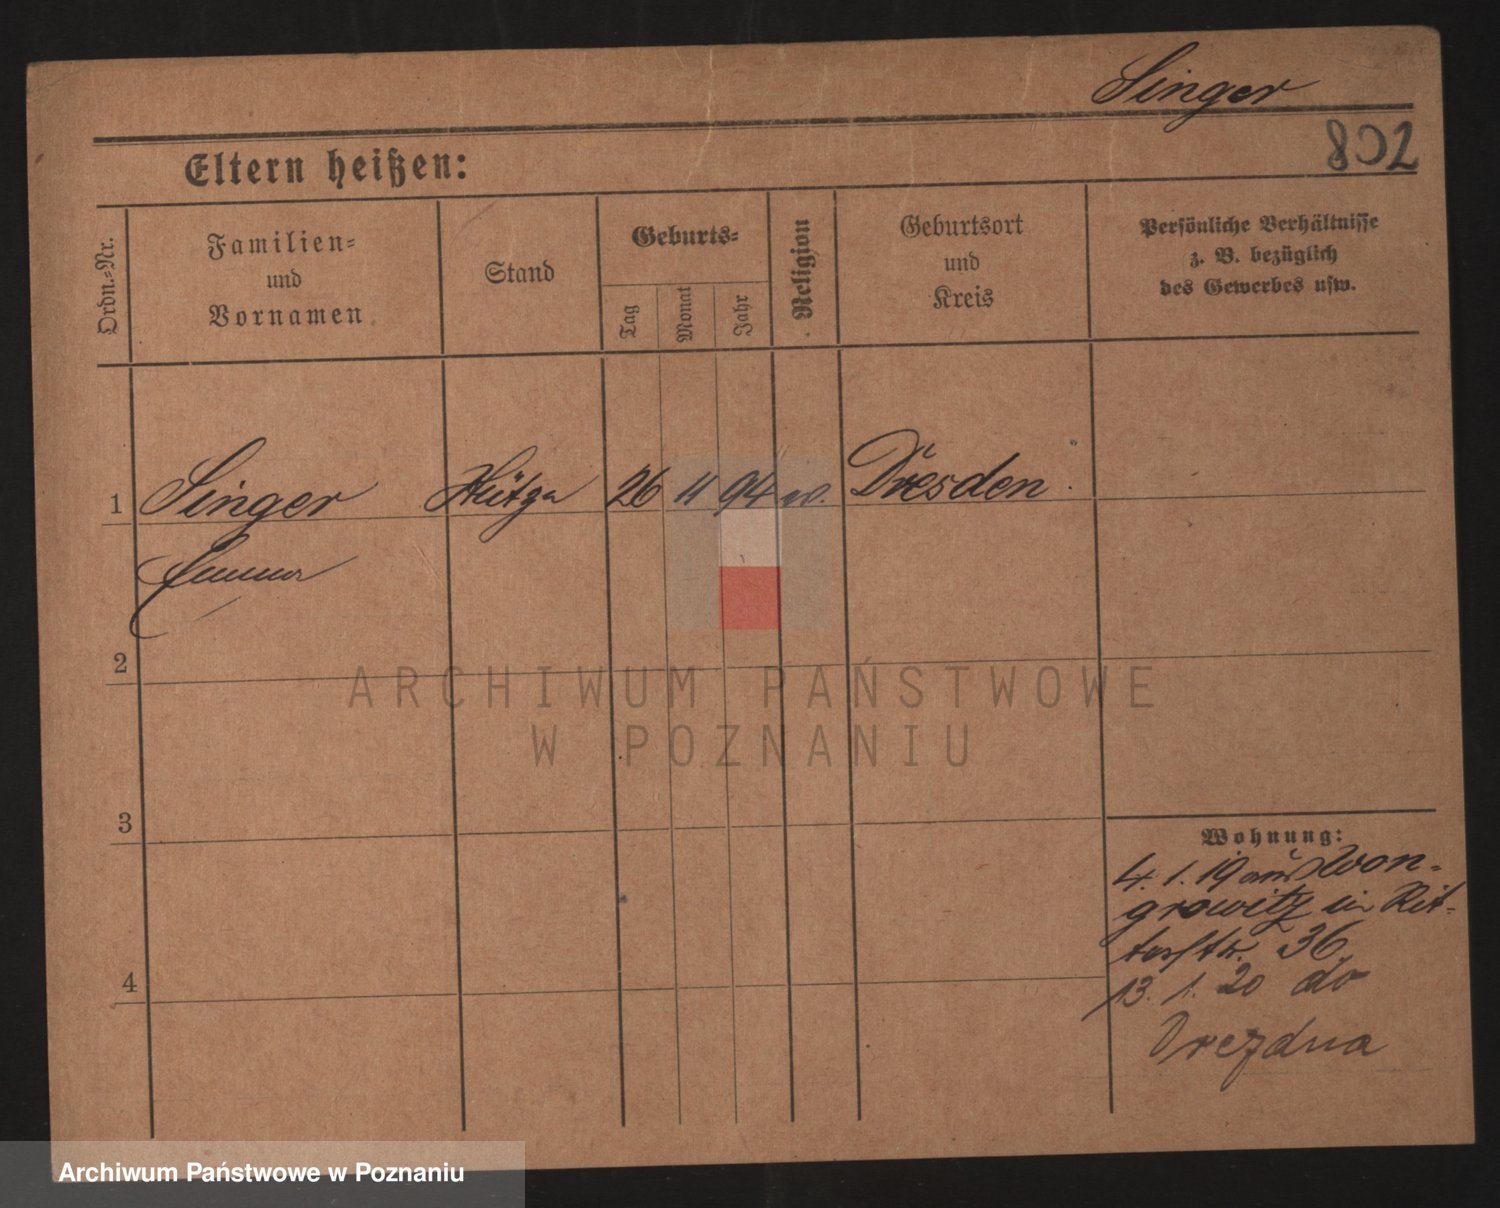 Singer
802
Eltern heißen:
Ordn.=Nr.
Familien=
und
Vornamen
Stand
Geburts=
Tag
Monat
Jahr
Religion
Geburtsort
und
Kreis
Persönliche Verhältnisse
z. B. bezüglich
des Gewerbes usw.
1 Singer 26 11 94 Dresden
Emma
2
3
4
ARCHIWUM PAŃSTWOWE
W POZNANIU
Wohnung:
4. 1. 19 aus Won-
growitz in Rit-
terstr. 36
13. 1. 20 do
Drezdna
Archiwum Państwowe w Poznaniu